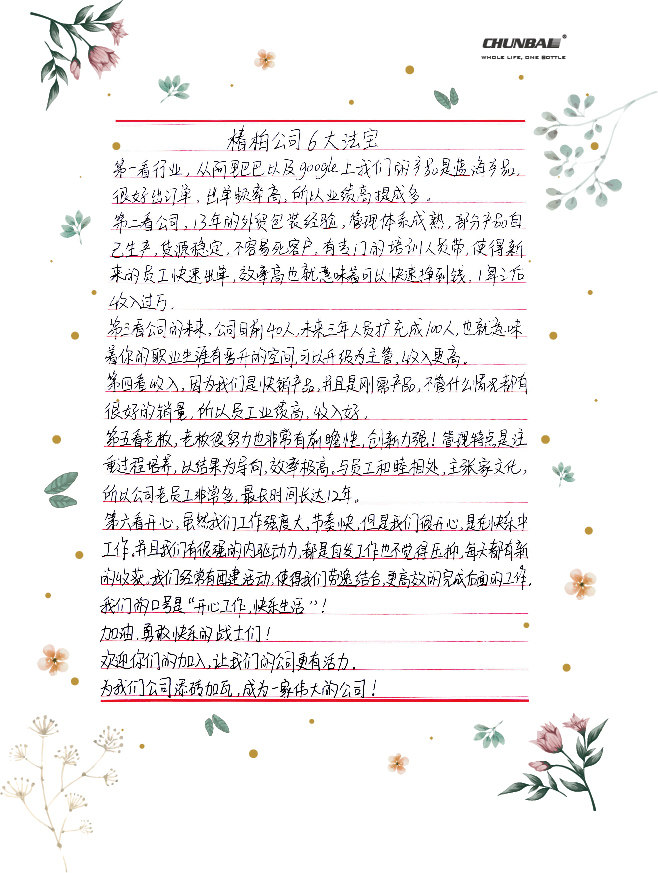 CHUNBAI®
WHOLE LIFE, ONE BOTTLE
椿柏公司6大法宝
第一看行业，从阿里巴巴以及google上我们的产品是蓝海产品，
很好出订单，出单频率高，所以业绩高提成多。
第二看公司，13年的外贸包装经验，管理体系成熟，部分产品自
己生产，货源稳定，不容易死客户，有专门的培训人员带，使得新
来的员工快速出单，效率高也就意味着可以快速挣到钱，1年之后
收入过万。
第三看公司的未来，公司目前40人，未来三年人员扩充成100人，也就意味
着你的职业生涯有晋升的空间，可以升级为主管，收入更高。
第四看收入，因为我们是快销产品，并且是刚需产品，不管什么情况都有
很好的销量，所以员工业绩高，收入好。
第五看老板，老板很努力也非常有前瞻性，创新力强！管理特点是注
重过程培养，以结果为导向，效率极高。与员工和睦相处，主张家文化，
所以公司老员工非常多，最长时间长达12年。
第六看开心，虽然我们工作强度大，节奏快，但是我们很开心，是在快乐中
工作，并且我们有很强的内驱动力，都是自发工作也不觉得压抑，每天都有新
的收获。我们经常有团建活动，使得我们劳逸结合，更高效的完成后面的工作。
我们的口号是“开心工作，快乐生活”！
加油，勇敢快乐的战士们！
欢迎你们的加入，让我们的公司更有活力。
为我们公司添砖加瓦，成为一家伟大的公司！